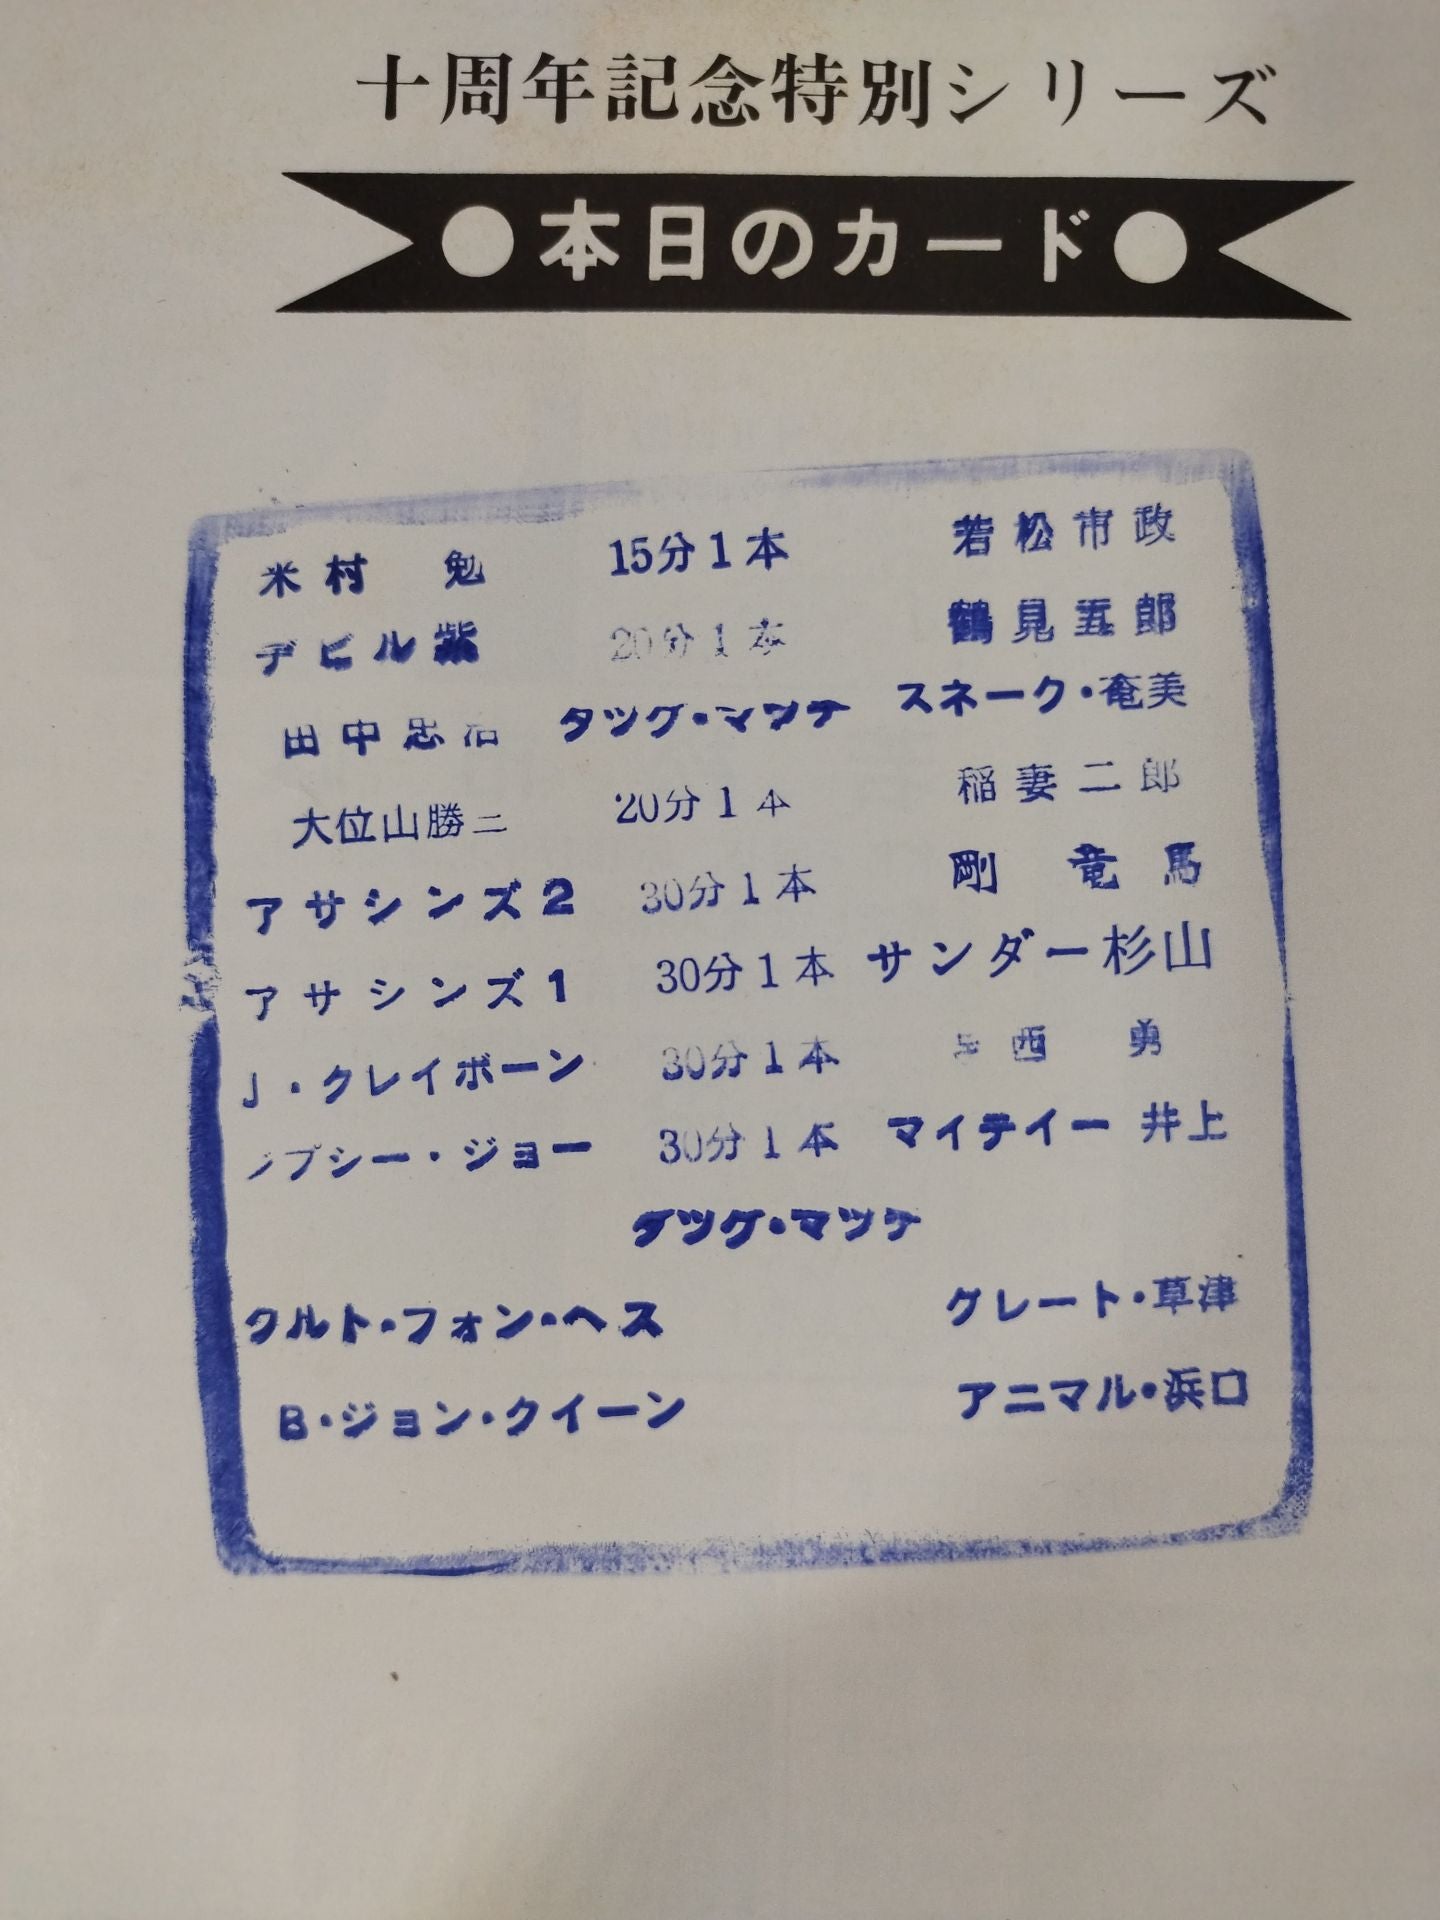 十周年記念特別シリーズ
●本日のカード●
米村 勉 15分1本 若松市政
デビル紫 20分1本 鶴見五郎
田中忠治 タッグ・マッチ スネーク・奄美
大位山勝三 20分1本 稲妻二郎
アサシンズ2 30分1本 剛 竜馬
アサシンズ1 30分1本 サンダー杉山
J・クレイボーン 30分1本 西 勇
ジプシー・ジョー 30分1本 マイティー井上
タッグ・マッチ
クルト・フォン・ヘス グレート・草津
B・ジョン・クイーン アニマル・浜口